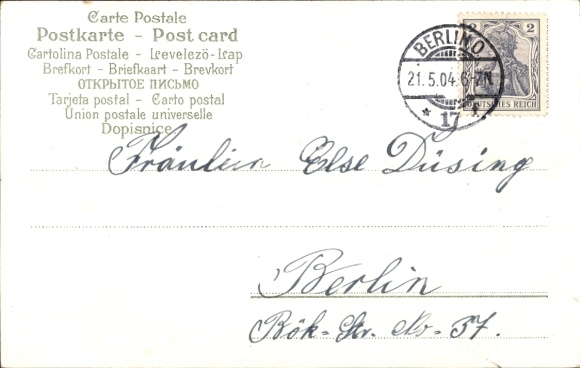 Carte Postale
Postkarte - Post card
Cartolina Postale - Levelezö-Lap
Brefkort - Briefkaart - Brevkort
ОТКРЫТОЕ ПИСЬМО
Tarjeta postal - Carto postal
Union postale universelle
Dopisnice
BERLIN O
21.5.04.6-7N.
* 17 f.
2
DEUTSCHES REICH
Fräulein Else Düsing
Berlin
Bök-Str. No-57.